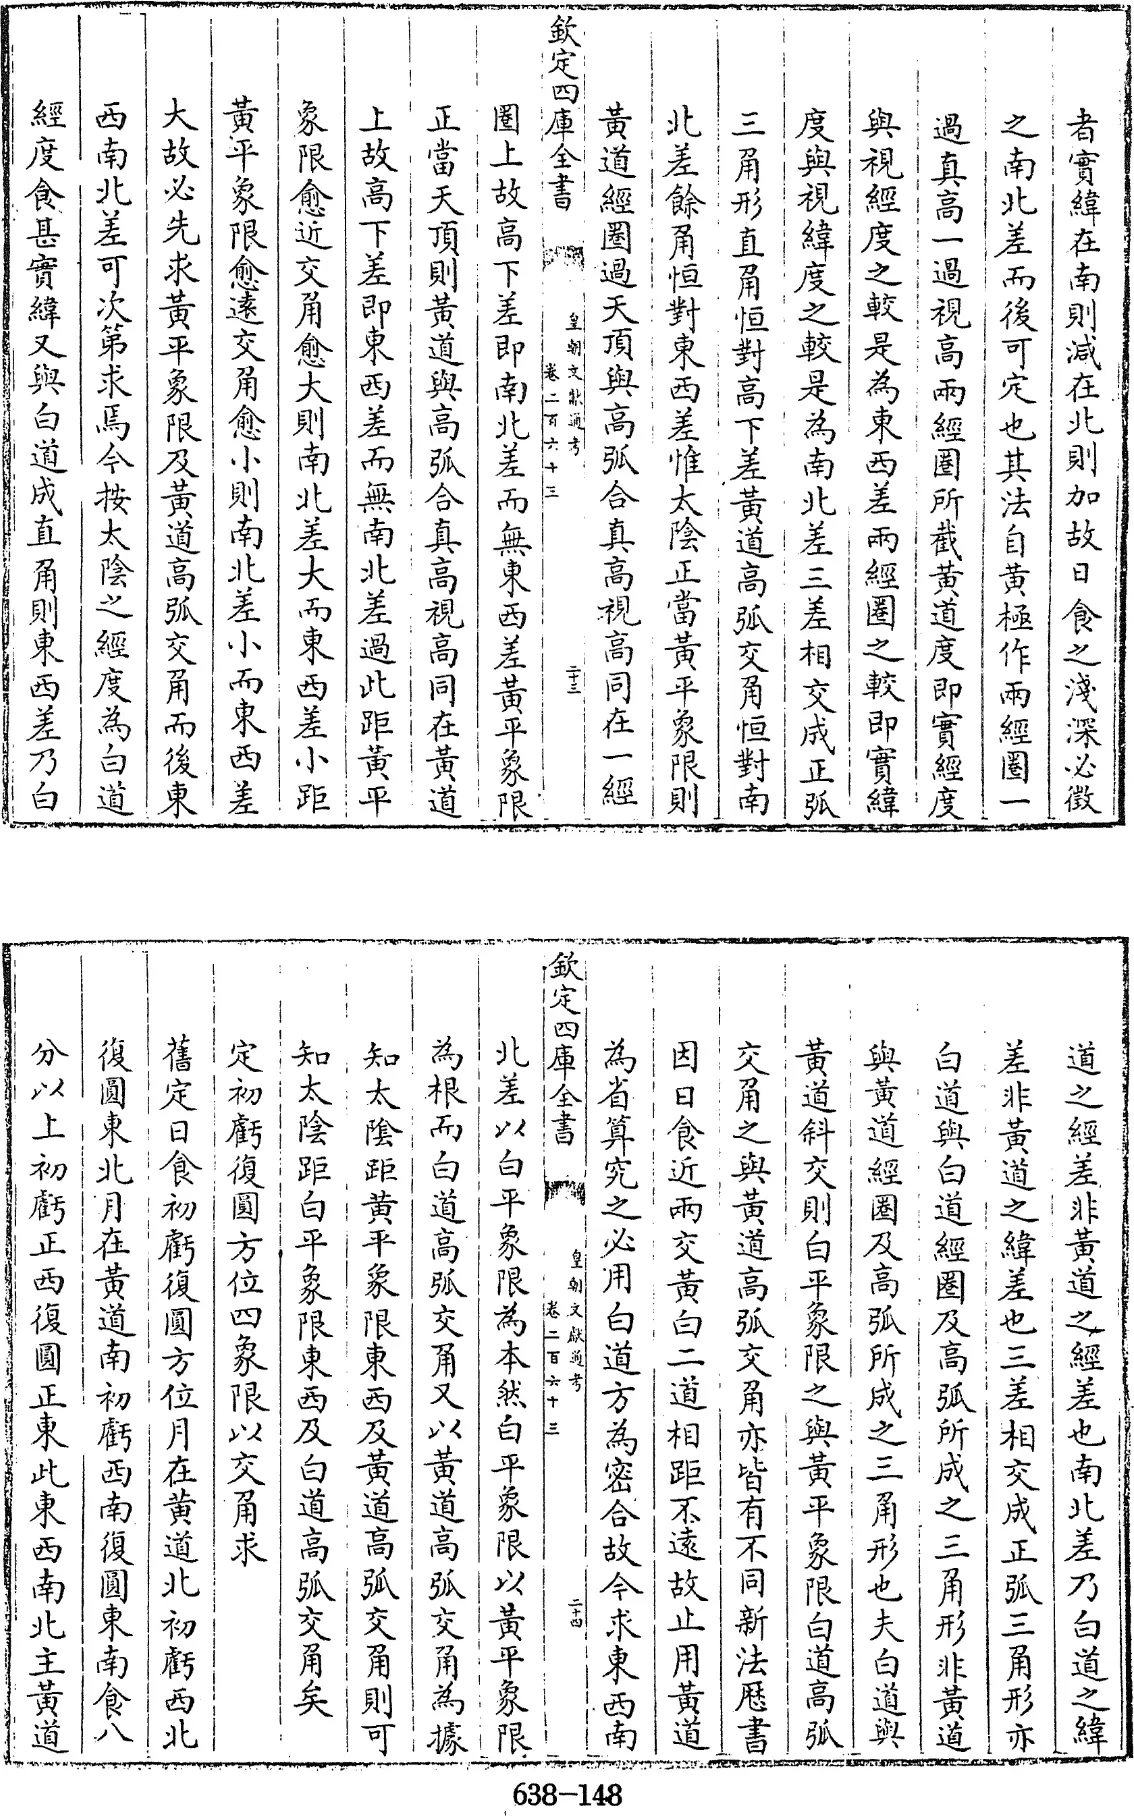 者實緯在南則減在北則加故日食之淺深必徵
之南北差而後可定也其法自黃極作兩經圈一
過真高一過視高兩經圈所截黃道度即實經度
與視經度之較是為東西差兩經圈之較即實緯
度與視緯度之較是為南北差三差相交成正弧
三角形直角恒對高下差黃道高弧交角恒對南
北差餘角恒對東西差惟太陰正當黃平象限則
黃道經圈過天頂與高弧合真高視高同在一經
欽定四庫全書
皇朝文獻通考
卷二百六十三
二十三
圈上故高下差即南北差而無東西差黃平象限
正當天頂則黃道與高弧合真高視高同在黃道
上故高下差即東西差而無南北差過此距黃平
象限愈近交角愈大則南北差大而東西差小距
黃平象限愈遠交角愈小則南北差小而東西差
大故必先求黃平象限及黃道高弧交角而後東
西南北差可次第求焉今按太陰之經度為白道
經度食甚實緯又與白道成直角則東西差乃白
道之經差非黃道之經差也南北差乃白道之緯
差非黃道之緯差也三差相交成正弧三角形亦
白道與白道經圈及高弧所成之三角形非黃道
與黃道經圈及高弧所成之三角形也夫白道與
黃道斜交則白平象限之與黃平象限白道高弧
交角之與黃道高弧交角亦皆有不同新法厯書
因日食近兩交黃白二道相距不遠故止用黃道
為省算究之必用白道方為密合故今求東西南
欽定四庫全書
皇朝文獻通考
卷二百六十三
二十四
北差以白平象限為本然白平象限以黃平象限
為根而白道高弧交角又以黃道高弧交角為據
知太陰距黃平象限東西及黃道高弧交角則可
知太陰距白平象限東西及白道高弧交角矣
定初虧復圓方位四象限以交角求
舊定日食初虧復圓方位月在黃道北初虧西北
復圓東北月在黃道南初虧西南復圓東南食八
分以上初虧正西復圓正東此東西南北主黃道
638-148